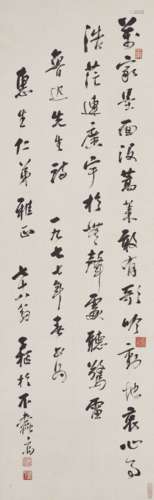 萬家墨面沒蒿萊敢有歌吟動地哀心事
浩茫連廣宇於無聲處聽驚雷
魯迅先生詩 一九七七年春正月
惠生仁弟雅正 七十八翁